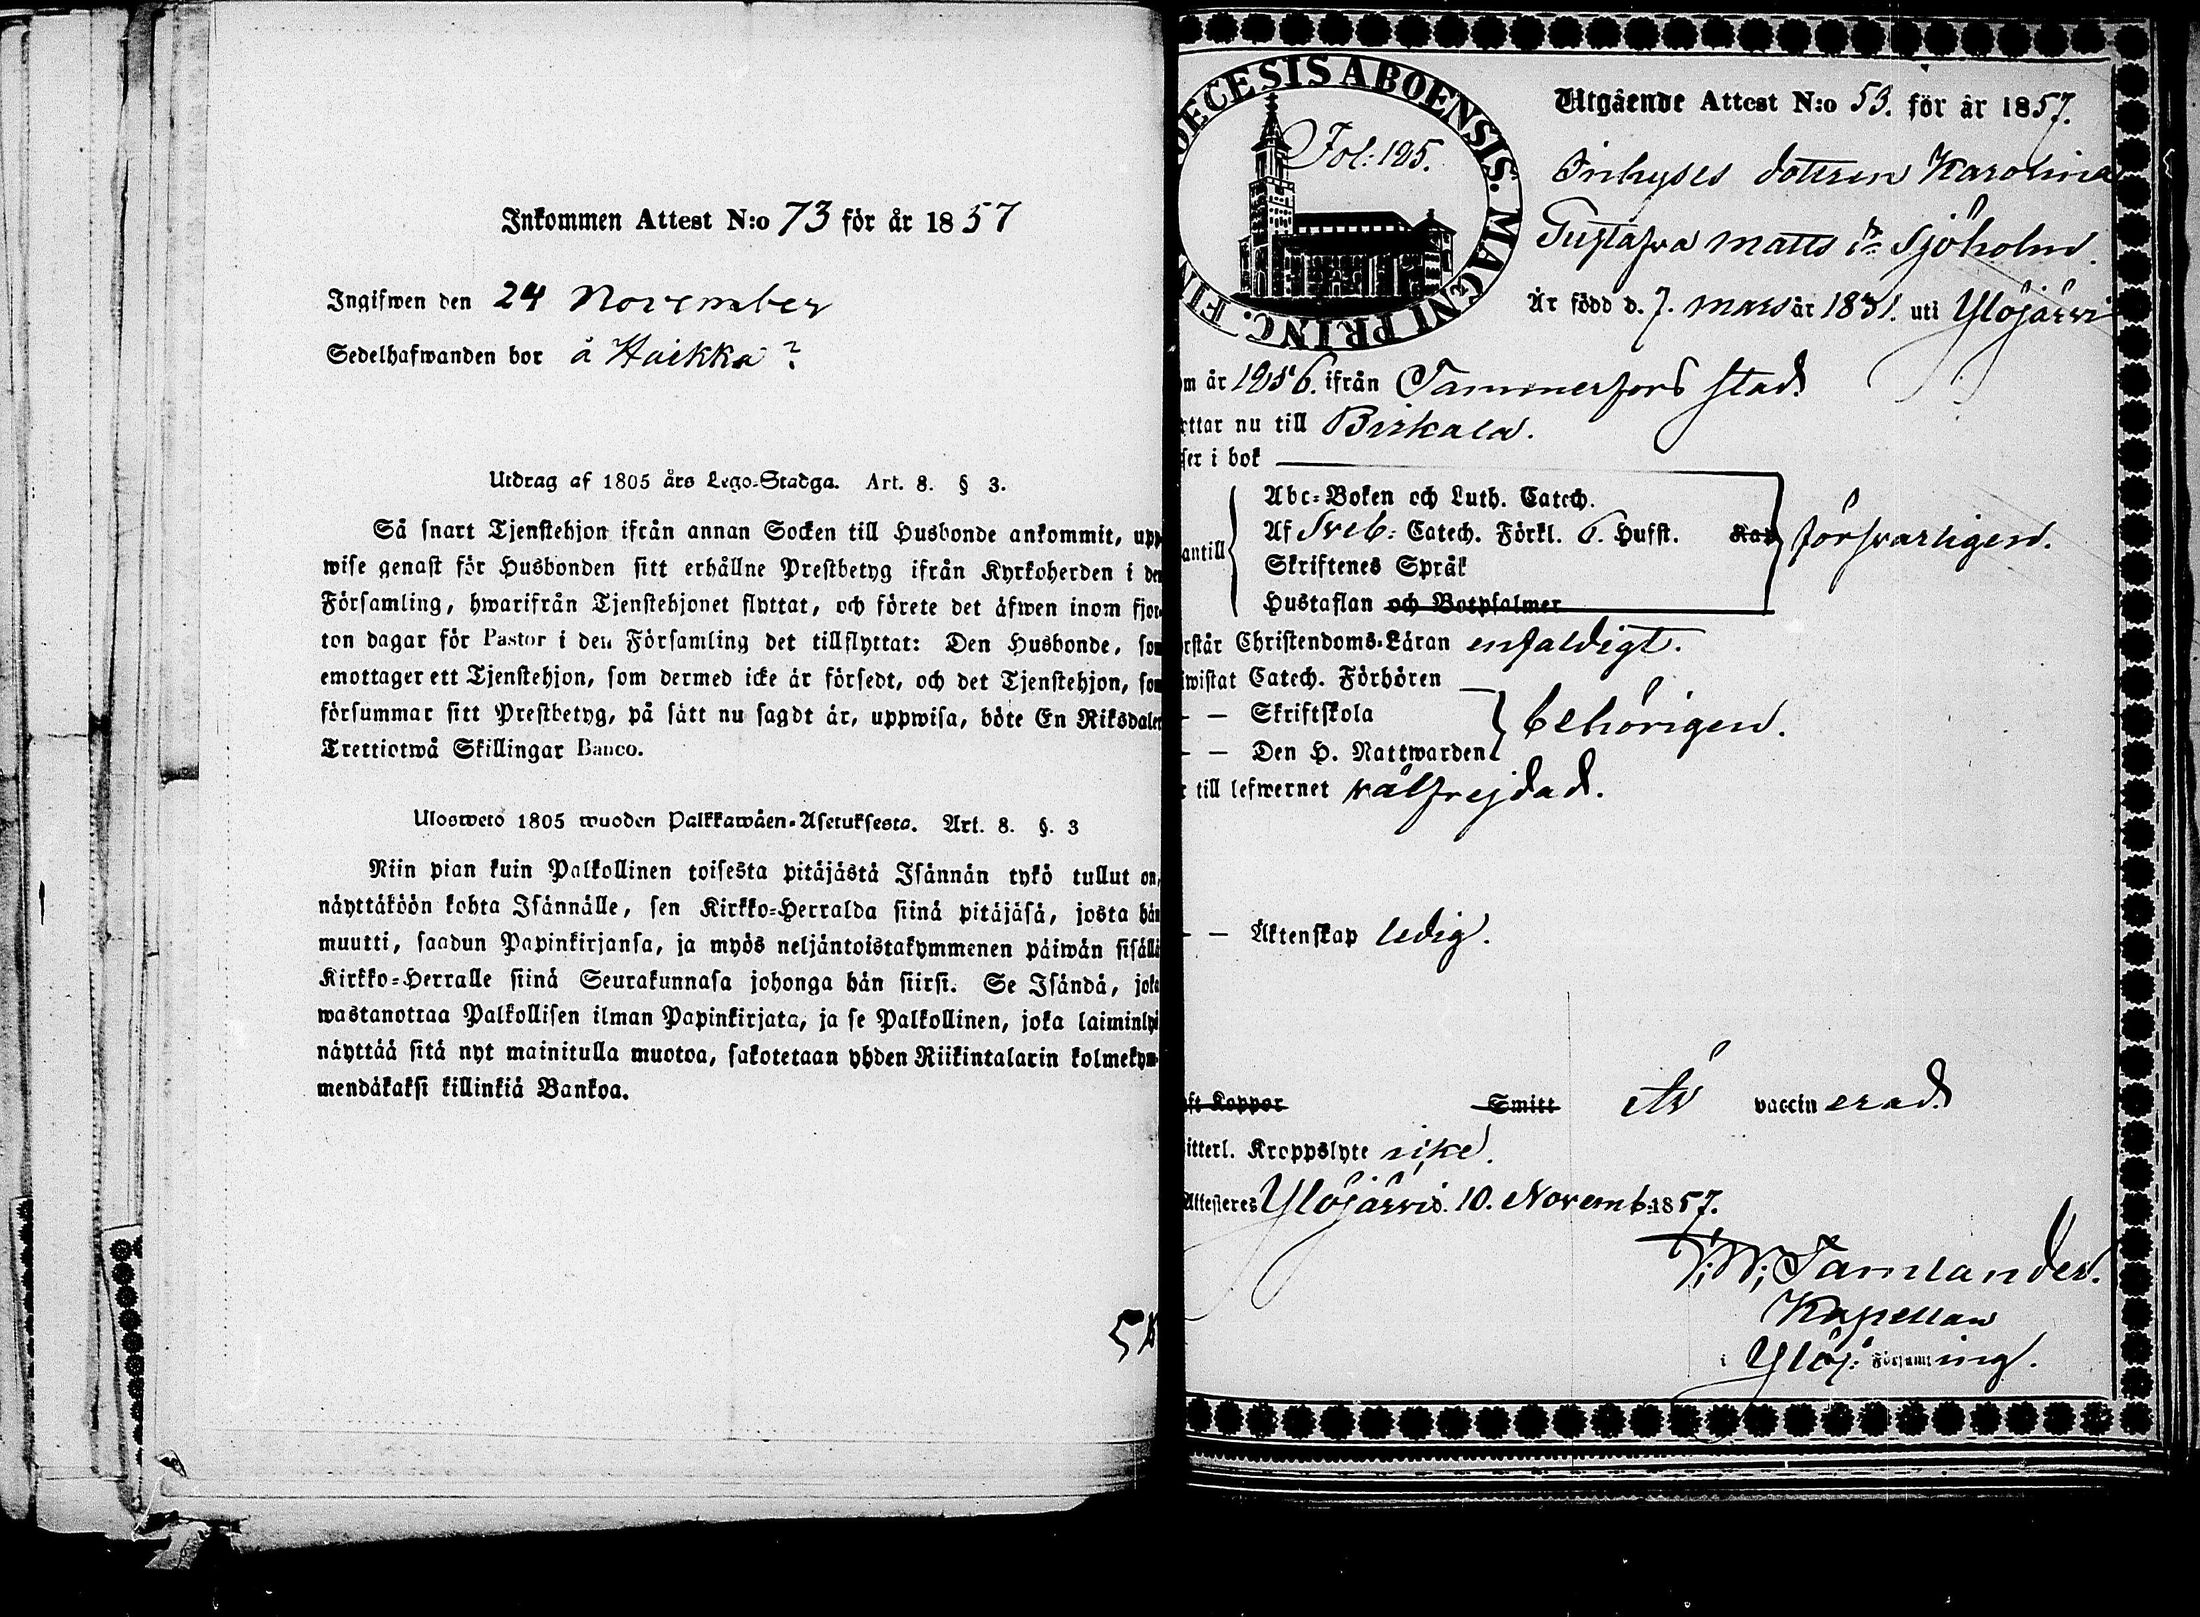 Inkommen Attest N:o 73 för år 1857
Ingifwen den 24 November
Sedelhafwanden bor å Haikka?
Utdrag af 1805 års Lego-Stadga. Art. 8. § 3.
Så snart Tjenstehjon ifrån annan Socken till Husbonde ankommit, upp
wise genast för Husbonden sitt erhållne Prestbetyg ifrån Kyrkoherden i den
Församling, hwarifrån Tjenstehjonet flyttat, och förete det äfwen inom fjor-
ton dagar för Pastor i den Församling det tillflyttat: Den Husbonde, som
emottager ett Tjenstehjon, som dermed icke är försedt, och det Tjenstehjon, som
försummar sitt Prestbetyg, på sätt nu sagdt är, uppwisa, böte En Riksdaler
Trettiotwå Skillingar Banco.
Ulosweto 1805 wuoden Palkkawäen-Asetuksesta. Art. 8. §. 3
Niin pian kuin Palkollinen toisesta pitäjästä Isännän tykö tullut on,
näyttäköön kohta Isännälle, sen Kirkko-Herralda siinä pitäjäsä, josta hän
muutti, saadun Papinkirjansa, ja myös neljäntoistakymmenen päiwän sisällä
Kirkko-Herralle siinä Seurakunnasa johonga hän siirsi. Se Isändä, joka
wastanottaa Palkollisen ilman Papinkirjata, ja se Palkollinen, joka laiminlyö
näyttää sitä nyt mainitulla muotoa, sakotetaan yhden Riikintalarin kolmekym-
mendäkaksi killinkiä Bankoa.
DECESIS ABOENSIS. MAGNI PRINC. FIN
Fol: 125.
Utgående Attest N:o 53. för år 1857.
Inhyses dottren Karolina
Gustafva Matts dr Sjöholm.
Är född d. 7. Mars år 1831. uti Ylöjärvi
om år 1856. ifrån Tammerfors stad.
ttar nu till Birkala.
ser i bok
antill
Abc-Boken och Luth. Catech.
Af Sveb: Catech. Förkl. 6. Hufst. försvarligen.
Skriftenes Språk
Hustaflan och Botpsalmer
rstår Christendoms-Läran enfaldigt.
wistat Catech. Förhören
— — Skriftskola behörigen.
— — Den H. Nattwarden
r till lefwernet välfrejdad.
— — Äktenskap ledig.
ft Koppor Smitt Är vaccinerad.
itterl. Kroppslyte icke.
Attesteres Ylöjärvi. 10. Novemb: 1857.
Kapellan
i Ylöj: Församling.